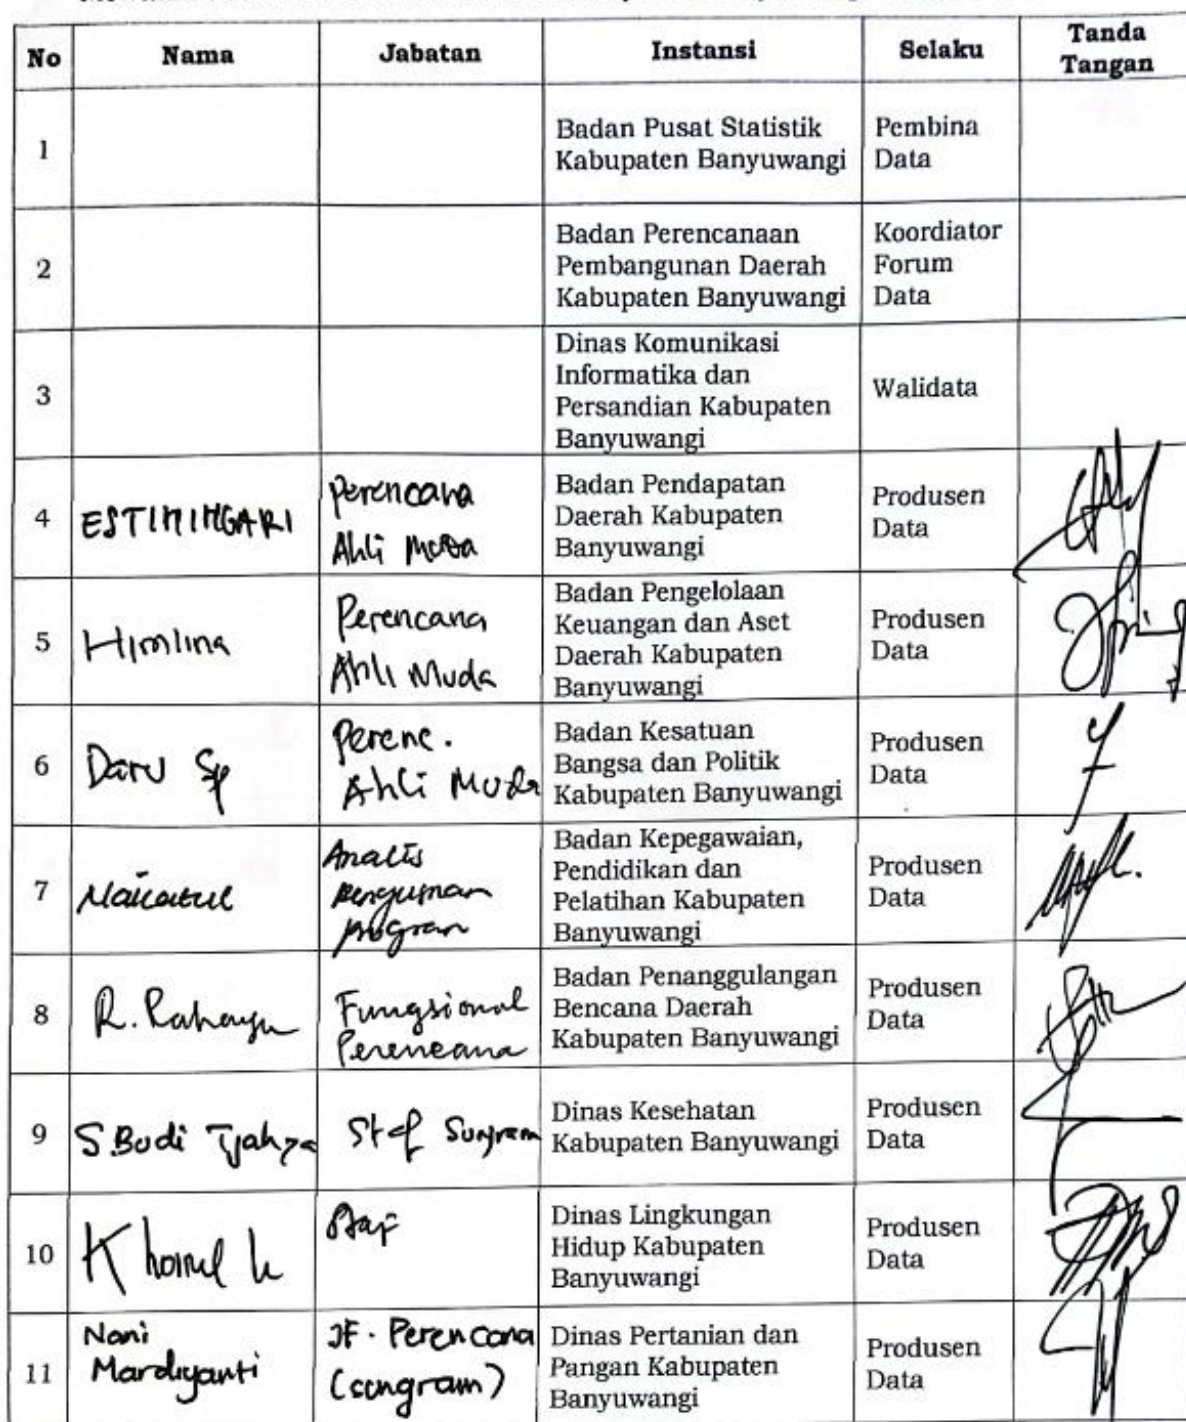 No Nama Jabatan Instansi Selaku Tanda Tangan
1 Badan Pusat Statistik Kabupaten Banyuwangi Pembina Data
2 Badan Perencanaan Pembangunan Daerah Kabupaten Banyuwangi Koordiator Forum Data
3 Dinas Komunikasi Informatika dan Persandian Kabupaten Banyuwangi Walidata
4 ESTININGARI Perencana Ahli Muda Badan Pendapatan Daerah Kabupaten Banyuwangi Produsen Data
5 Himlina Perencana Ahli Muda Badan Pengelolaan Keuangan dan Aset Daerah Kabupaten Banyuwangi Produsen Data
6 Daru Sp Perenc. Ahli Muda Badan Kesatuan Bangsa dan Politik Kabupaten Banyuwangi Produsen Data
7 Analis program Badan Kepegawaian, Pendidikan dan Pelatihan Kabupaten Banyuwangi Produsen Data
8 R. Rahayu Fungsional Perencana Badan Penanggulangan Bencana Daerah Kabupaten Banyuwangi Produsen Data
9 S.Budi Tjahya Staf Sungram Dinas Kesehatan Kabupaten Banyuwangi Produsen Data
10 Staf Dinas Lingkungan Hidup Kabupaten Banyuwangi Produsen Data
11 Noni Mardiyanti JF. Perencana (sungram) Dinas Pertanian dan Pangan Kabupaten Banyuwangi Produsen Data